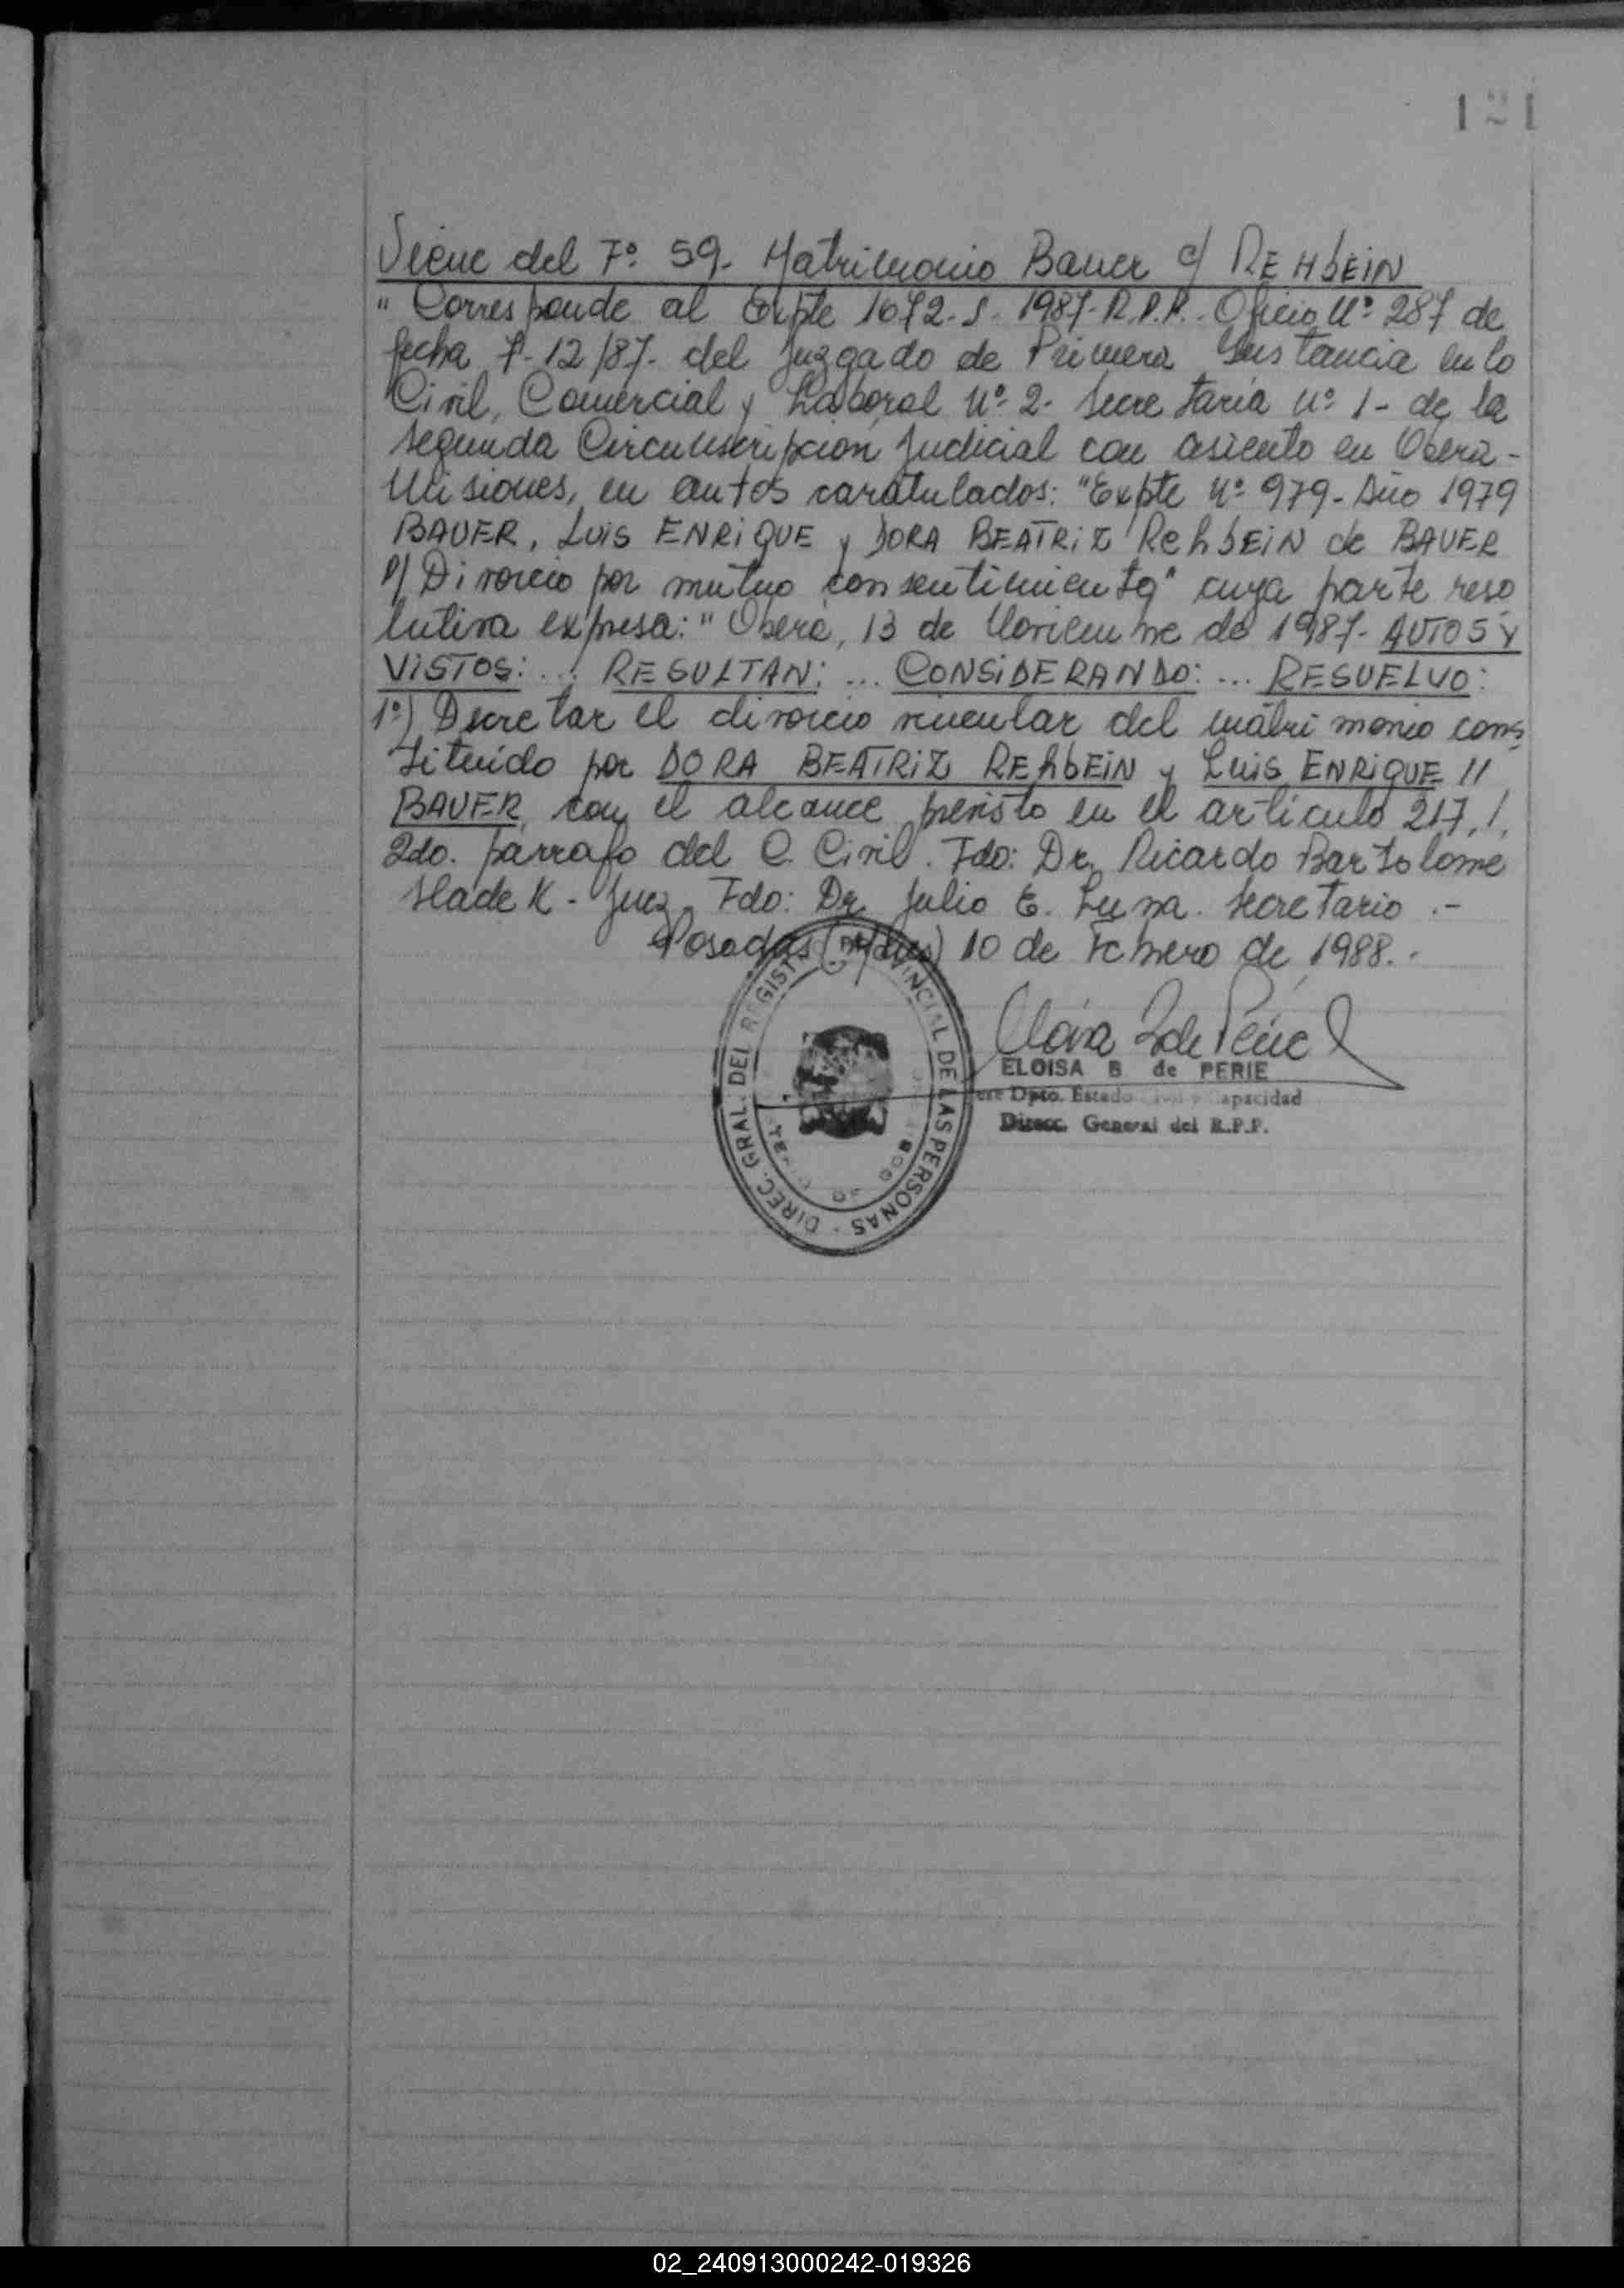 121
Viene del Fº. 59. Matrimonio Bauer c/ REHbEiN
" Corresponde al Expte 1672-S-1987-R.P.P. Oficio Nº 287 de
fecha 7-12/87- del Juzgado de Primera Instancia en lo
Civil, Comercial y Laboral Nº 2- Secretaría Nº 1- de la
segunda Circunscripción Judicial con asiento en Oberá-
Misiones, en autos caratulados: "Expte Nº 979-Año 1979
BAUER, LUiS ENRiQUE y DORA BEATRiZ RehbEiN de BAUER
p/ Divorcio por mutuo consentimiento" cuya parte reso
lutiva expresa: "Oberá, 13 de Noviembre de 1987- AUTOS Y
ViSTOS: ... RESULTAN: ... CONSiDERANDO: ... RESUELVO:
1º) Decretar el divorcio vincular del matrimonio cons
tituído por DORA BEATRiZ REhbEiN y LuiS ENRiQUE //
BAUER, con el alcance previsto en el artículo 217, /,
2do. párrafo del C. Civil. Fdo: Dr. Ricardo Bartolome
Sladek - Juez. Fdo: Dr Julio E. Luna. Secretario .-
Posadas (Mnes) 10 de Febrero de 1988. -
DIREC. GRAL. DEL REGISTRO PROVINCIAL DE LAS PERSONAS
ELOISA B de PERIE
Jefe Dpto. Estado Civil y Capacidad
Direcc. General del R.P.P.
02_240913000242-019326